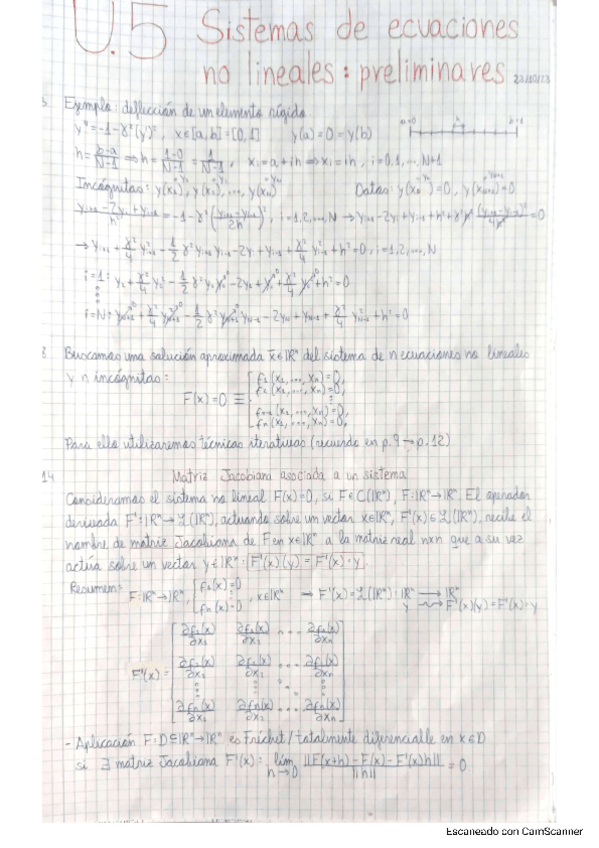 U.5 Sistemas de ecuaciones
no lineales: preliminares 23/10/23
Ejemplo: deflección de un elemento rígido
y" = -1 - γ²(y')², x∈[a,b]=[0,1] y(a)=0=y(b) a=0 h b=1
h = b-a/N-1 ⇒ h = 1-0/N-1 = 1/N-1, xi = a+ih ⇒ xi = ih, i=0,1,..., N+1
Incógnitas: y(x1), y(x2), ..., y(xN) Datos: y(x0)=0, y(xN+1)=0
i=1,2,...,N
i=1,2,...,N
i=1:
i=N:
8 Buscamos una solución aproximada x̄∈ℝⁿ del sistema de n ecuaciones no lineales
y n incógnitas:
f1(x1,...,xn)=0,
f2(x1,...,xn)=0,
F(x)=0 ≡
fn-1(x1,...,xn)=0,
fn(x1,...,xn)=0,
Para ello utilizaremos técnicas iterativas (recuerdo en p.9→p.12)
14 Matriz Jacobiana asociada a un sistema
Consideramos el sistema no lineal F(x)=0, si F∈C(ℝⁿ), F:ℝⁿ→ℝⁿ. El operador
derivada F':ℝⁿ→ℒ(ℝⁿ), actuando sobre un vector x∈ℝⁿ, F'(x)∈ℒ(ℝⁿ), recibe el
nombre de matriz Jacobiana de F en x∈ℝⁿ a la matriz real nxn que a su vez
actúa sobre un vector y∈ℝⁿ: F'(x)(y) = F'(x)·y.
Resumen: F:ℝⁿ→ℝⁿ, f1(x)=0 ⋮ fn(x)=0, x∈ℝⁿ → F'(x)=ℒ(ℝⁿ): ℝⁿ → ℝⁿ
y ⇝ F'(x)(y)=F'(x)·y
∂f1(x)/∂x1 ∂f1(x)/∂x2 ... ∂f1(x)/∂xn
F'(x) = ∂f2(x)/∂x1 ∂f2(x)/∂x2 ... ∂f2(x)/∂xn
∂fn(x)/∂x1 ∂fn(x)/∂x2 ... ∂fn(x)/∂xn
- Aplicación F:D⊆ℝⁿ→ℝⁿ es Fréchet/totalmente diferenciable en x∈D
si ∃ matriz Jacobiana F'(x): lím h→0 ||F(x+h)-F(x)-F'(x)h||/||h|| = 0
Escaneado con CamScanner